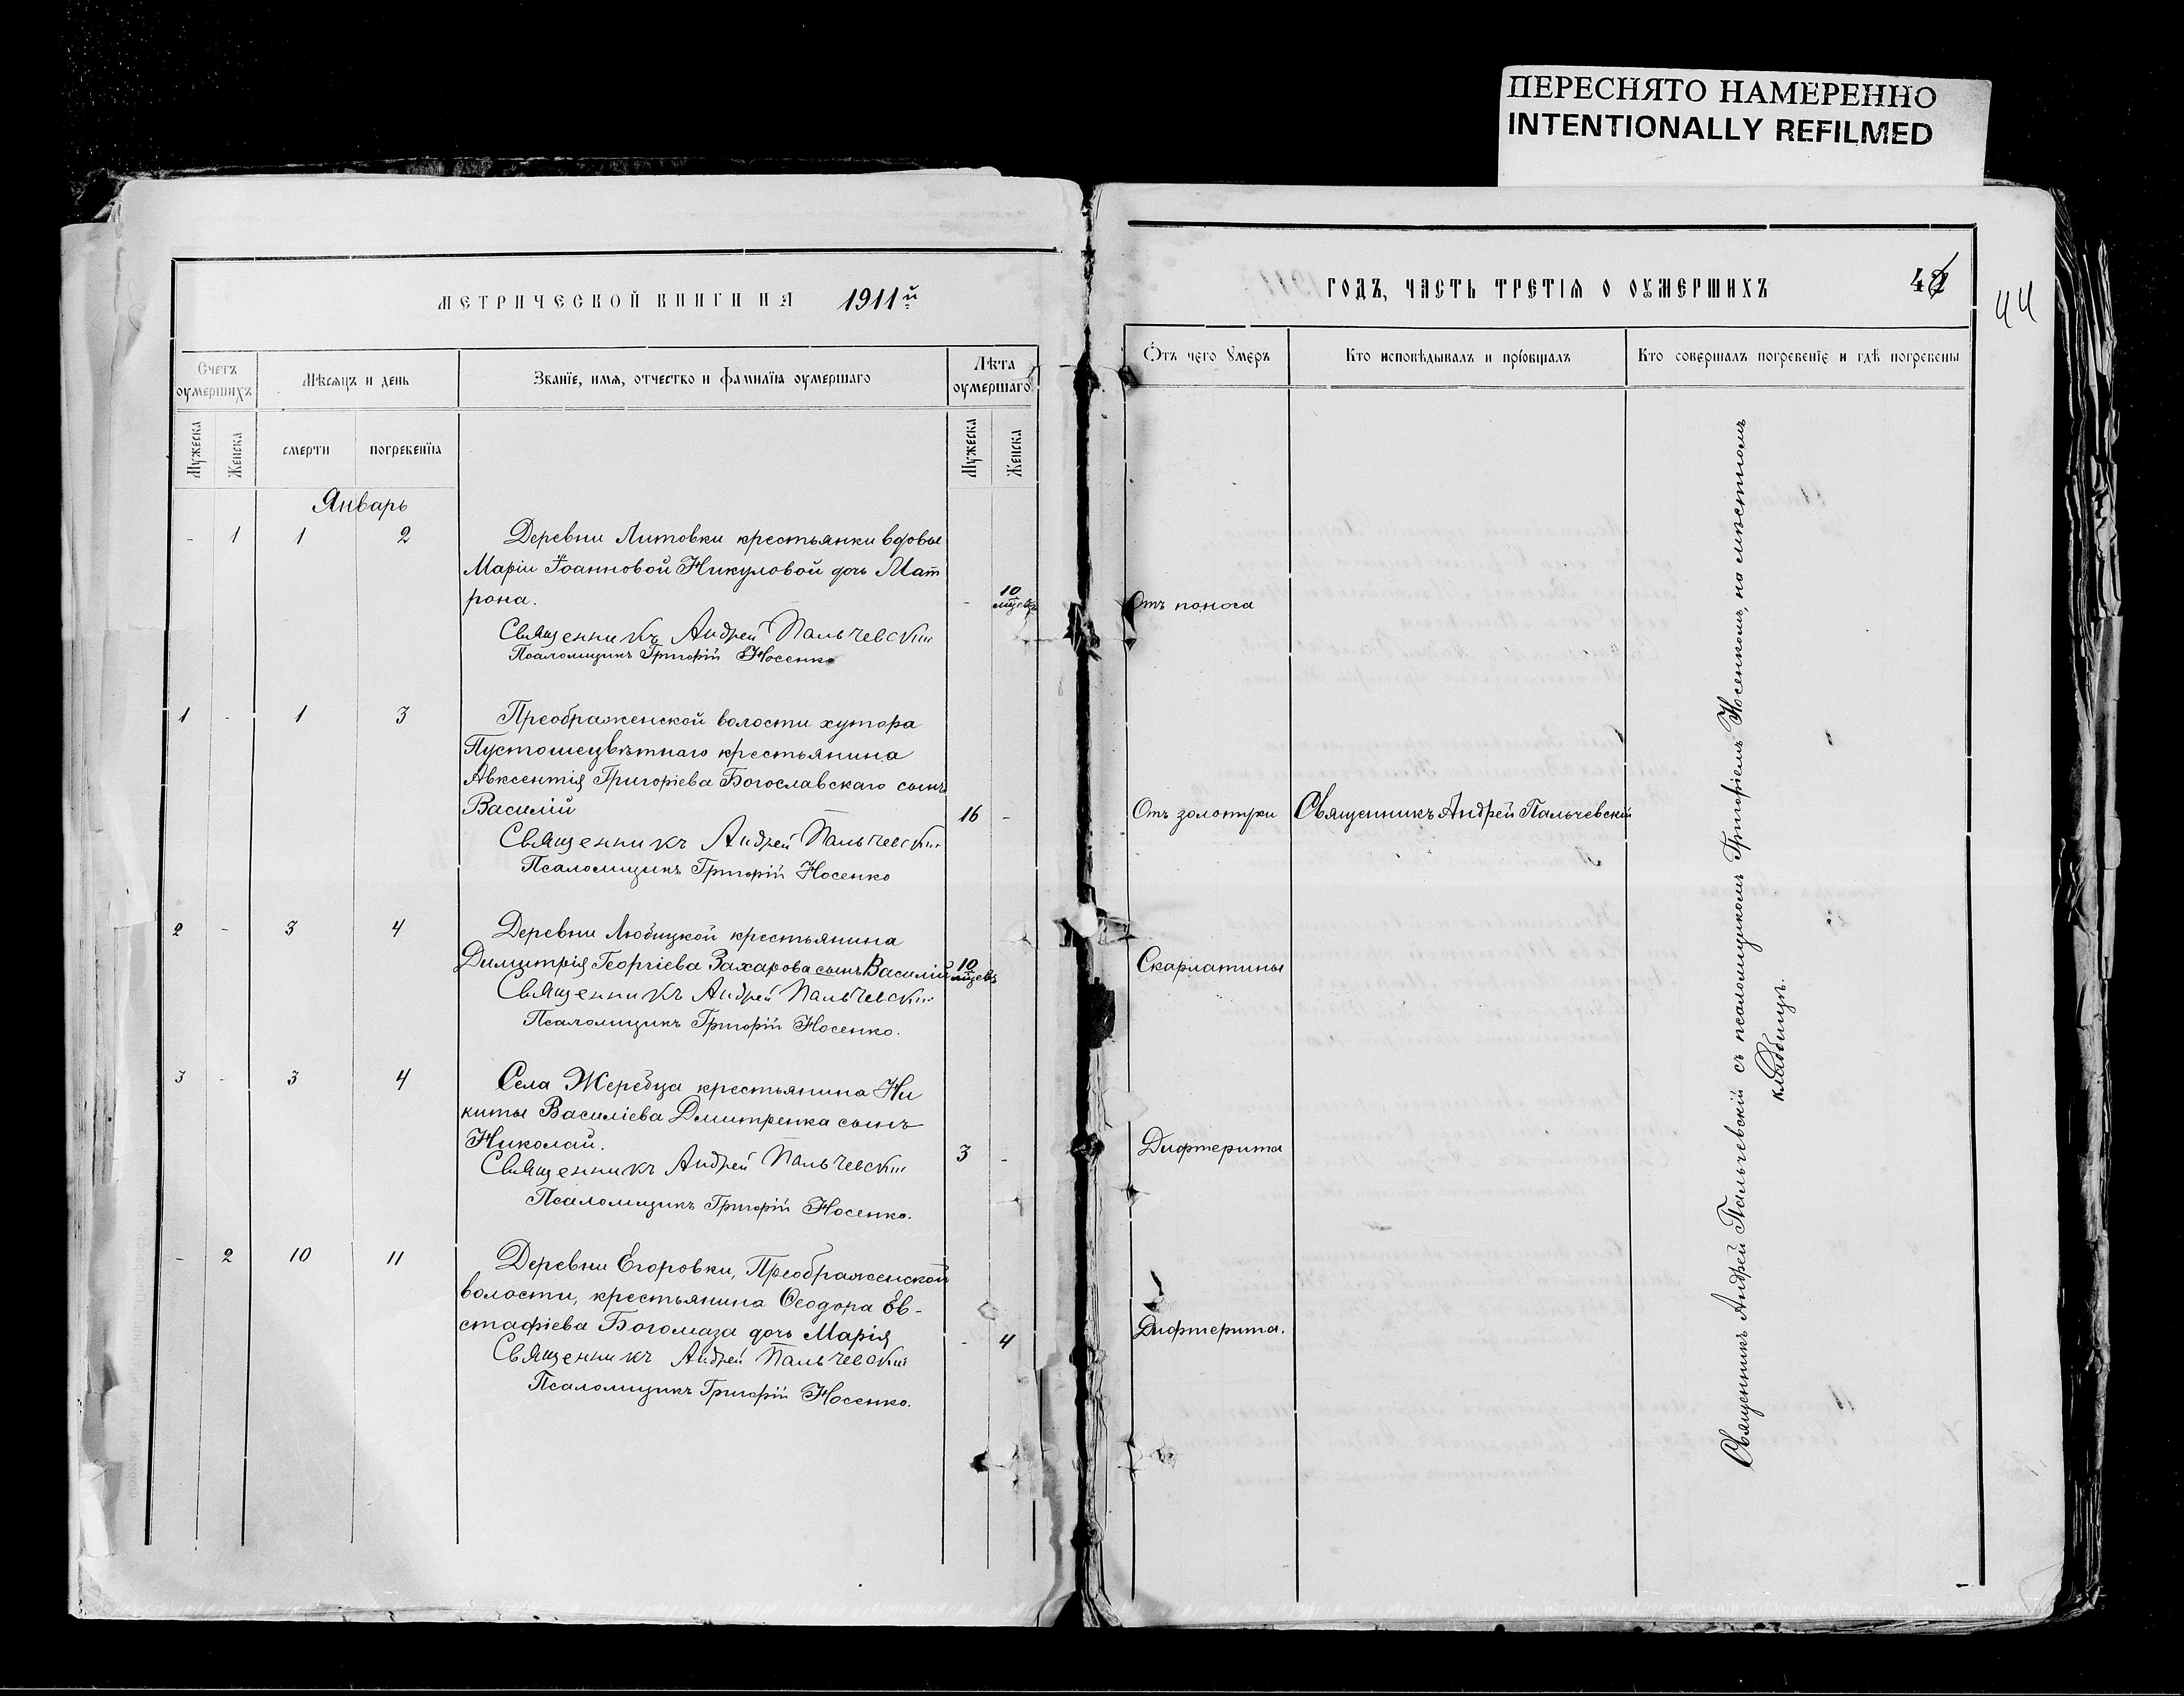 ПЕРЕСНЯТО НАМЕРЕННО
INTENTIONALLY REFILMED
МЕТРИЧЕСКОЙ КНИГИ НА 1911й
Счетъ оумершихъ
Мѣсяцъ и день
Званїе, имя, отчество и фамилїа оумершаго
Лѣта оумершаго
Мужеска
Женска
смерти
погребенїя
Мужеска
Женска
Январь
- 1 1 2 Деревни Литовки крестьянки вдовы
Маріи Іоанновой Никуловой дочь Мат
рона. - 10 мцевъ
Священникъ Андрей Пальчевскій
Псаломщикъ Григорій Носенко
1 - 1 3 Преображенской волости хутора
Пустошецвѣтнаго крестьянина
Авксентія Григоріева Богославскаго сынъ
Василій 16 -
Священникъ Андрей Пальчевскій
Псаломщикъ Григорій Носенко
2 - 3 4 Деревни Любицкой крестьянина
Димитрія Георгіева Захарова сынъ Василій 10 мцевъ
Священникъ Андрей Пальчевскій
Псаломщикъ Григорій Носенко.
3 - 3 4 Села Жеребца крестьянина Ни
киты Василіева Дмитренка сынъ
Николай. 3 -
Священникъ Андрей Пальчевскій
Псаломщикъ Григорій Носенко.
- 2 10 11 Деревни Егоровки, Преображенской
волости, крестьянина Ѳеодора Ев-
стафіева Богомаза дочь Марія - 4
Священникъ Андрей Пальчевскій
Псаломщикъ Григорій Носенко.
ГОДЪ, ЧАСТЬ ТРЕТІЯ О ОУМЕРШИХЪ
44
Отъ чего умеръ
Кто исповѣдывалъ и прїобщалъ
Кто совершалъ погребенїе и гдѣ погребены
Отъ поноса
Отъ золотухи Священникъ Андрей Пальчевскій
Скарлатины
Дифтерита
Дифтерита.
Священникъ Андрей Пальчевскій съ псаломщикомъ Григоріемъ Носенкомъ, на мѣстномъ
кладбищѣ.